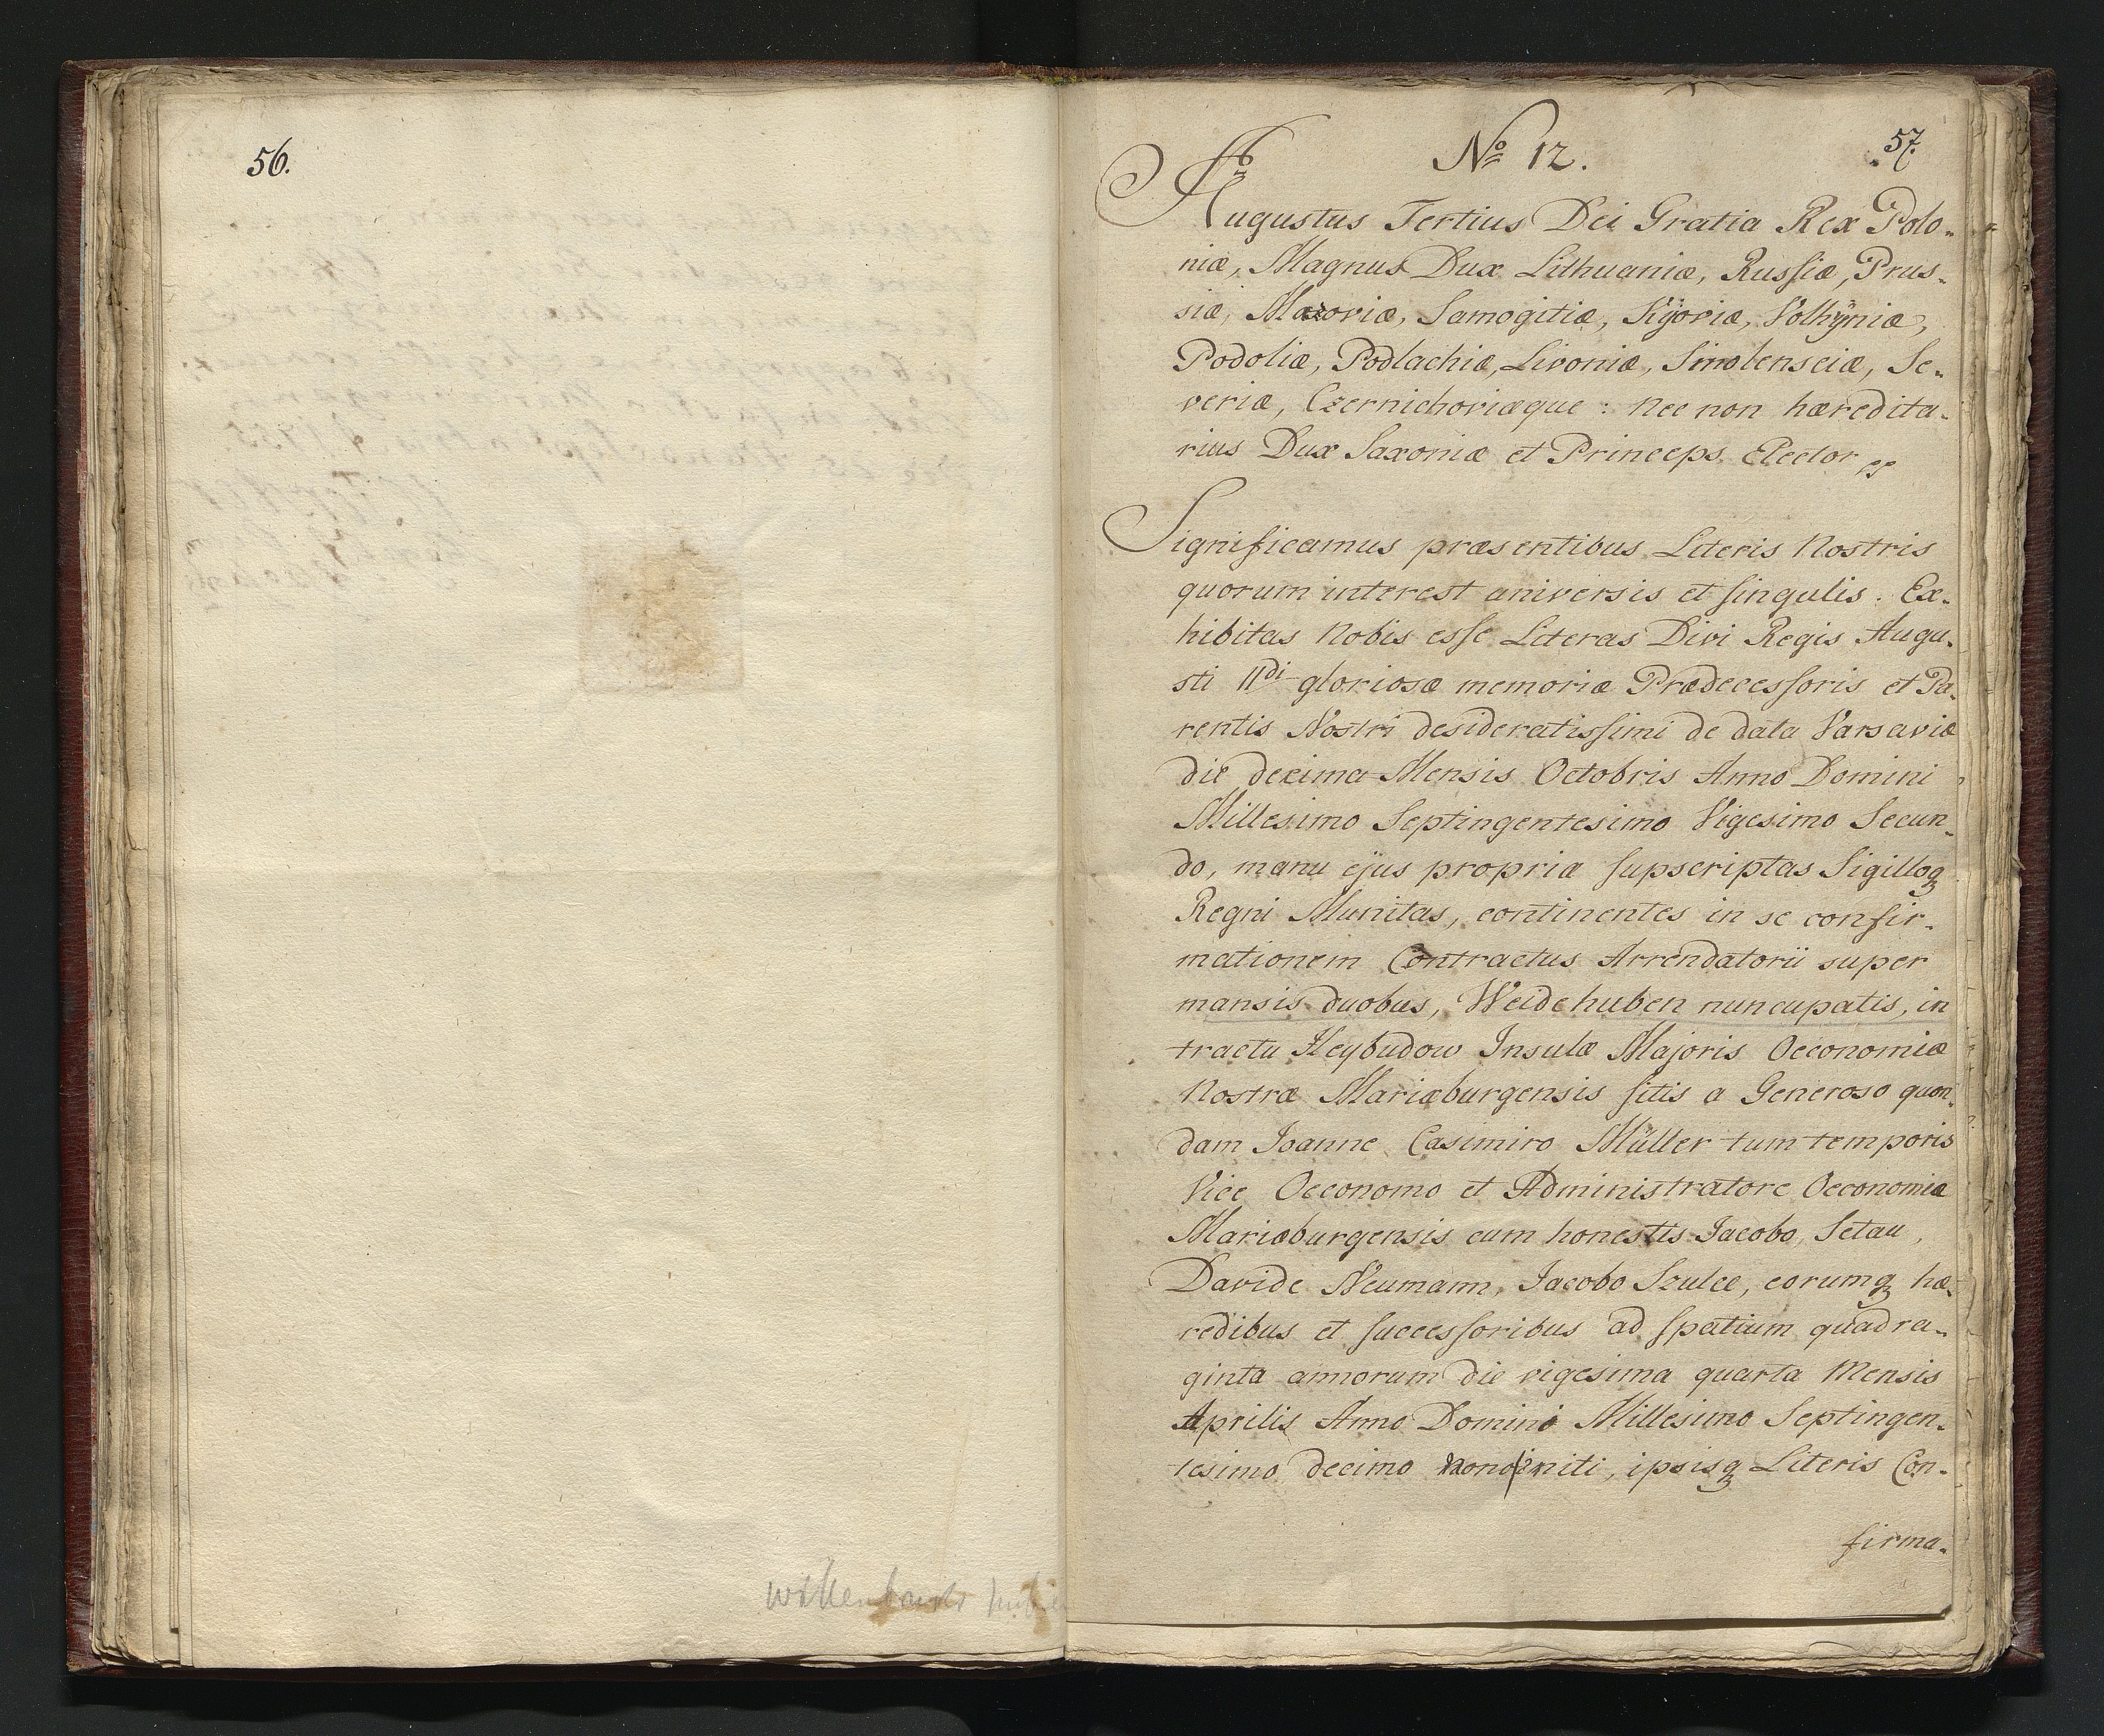 56.
57.
Nº 12.
Augustus Tertius Dei Gratia Rex Polo-
niæ, Magnus Dux Lithuaniæ, Russiæ, Prus-
siæ, Mazoviæ, Samogitiæ, Kijoviæ, Volhÿniæ,
Podoliæ, Podlachiæ, Livoniæ, Smolensciæ, Se-
veriæ, Czernichoviæque: Nec non hæredita-
rius Dux Saxoniæ et Princeps Elector
Significamus præsentibus Literis Nostris
quorum interest universis et singulis. Ex-
hibitas Nobis esse Literas Divi Regis Augu-
sti IIdi gloriosæ memoriæ Prædecessoris et Pa-
rentis Nostri desideratissimi de data Varsaviæ
die decima Mensis Octobris Anno Domini
Millesimo Septingentesimo Vigesimo Secun-
do, manu ejus propria supscriptas Sigilloq
Regni Munitas, continentes in se confir-
mationem Contractus Arrendatorii super
mansis duobus, Weidehuben nuncupatis, in
tractu Heybudow Insulæ Majoris Oeconomiæ
Nostræ Mariæburgensis sitis a Generoso quon-
dam Joanne Casimiro Müller tum temporis
Vice Oeconomo et Administratore Oeconomiæ
Mariæburgensis cum honestis Jacobo, Setau,
Davide Neumann, Jacobo Szulce, eorumq hæ-
redibus et successoribus ad spatium quadra-
ginta annorum die vigesima quarta Mensis
Aprilis Anno Domini Millesimo Septingen-
tesimo decimo nono initi, ipsisq Literis Con-
firma-